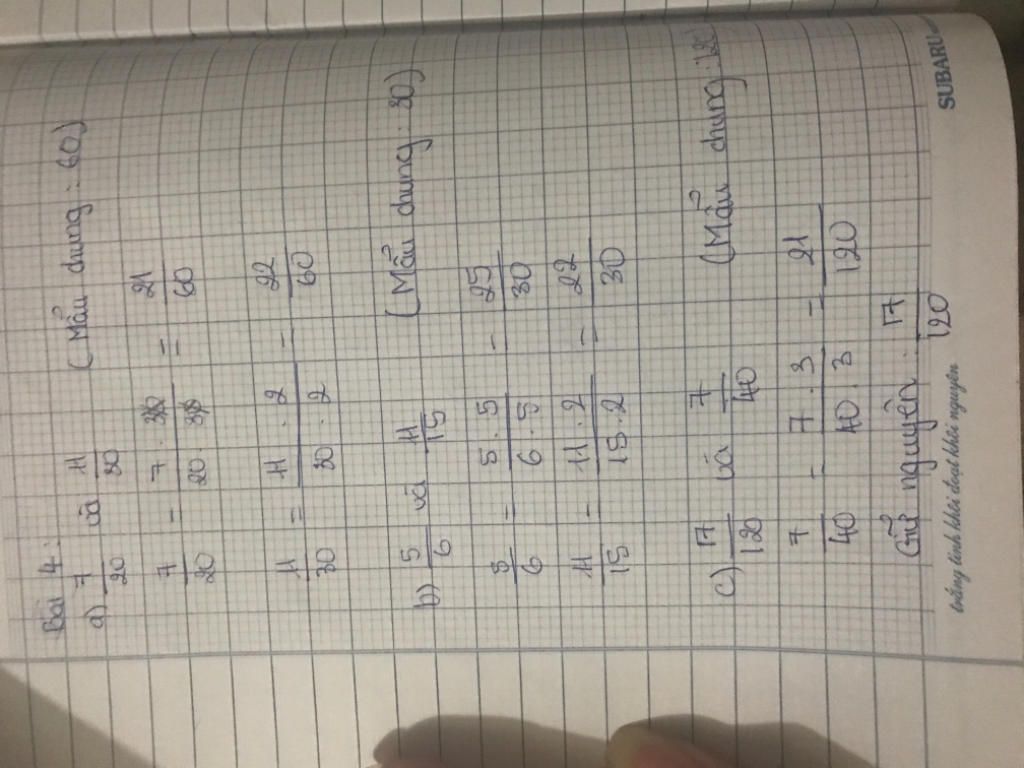 Bài 4:
a) 7/20 và 11/30 (Mẫu chung: 60)
7/20 = 7 . 3/20 . 3 = 21/60
11/30 = 11 . 2/30 . 2 = 22/60
b) 5/6 và 11/15 (Mẫu chung: 30)
5/6 = 5 . 5/6 . 5 = 25/30
11/15 = 11 . 2/15 . 2 = 22/30
c) 17/120 và 7/40 (Mẫu chung: 120)
7/40 = 7 . 3/40 . 3 = 21/120
Giữ nguyên: 17/120
SUBARU